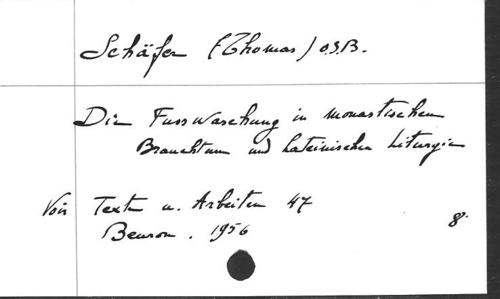 Schäfer (Thomas) O.S.B.
Die Fusswaschung in monastischen
Brauchtum und Lateinischen Liturgie
Voir Texte u. Arbeiten 47
Beuron. 1956 8°